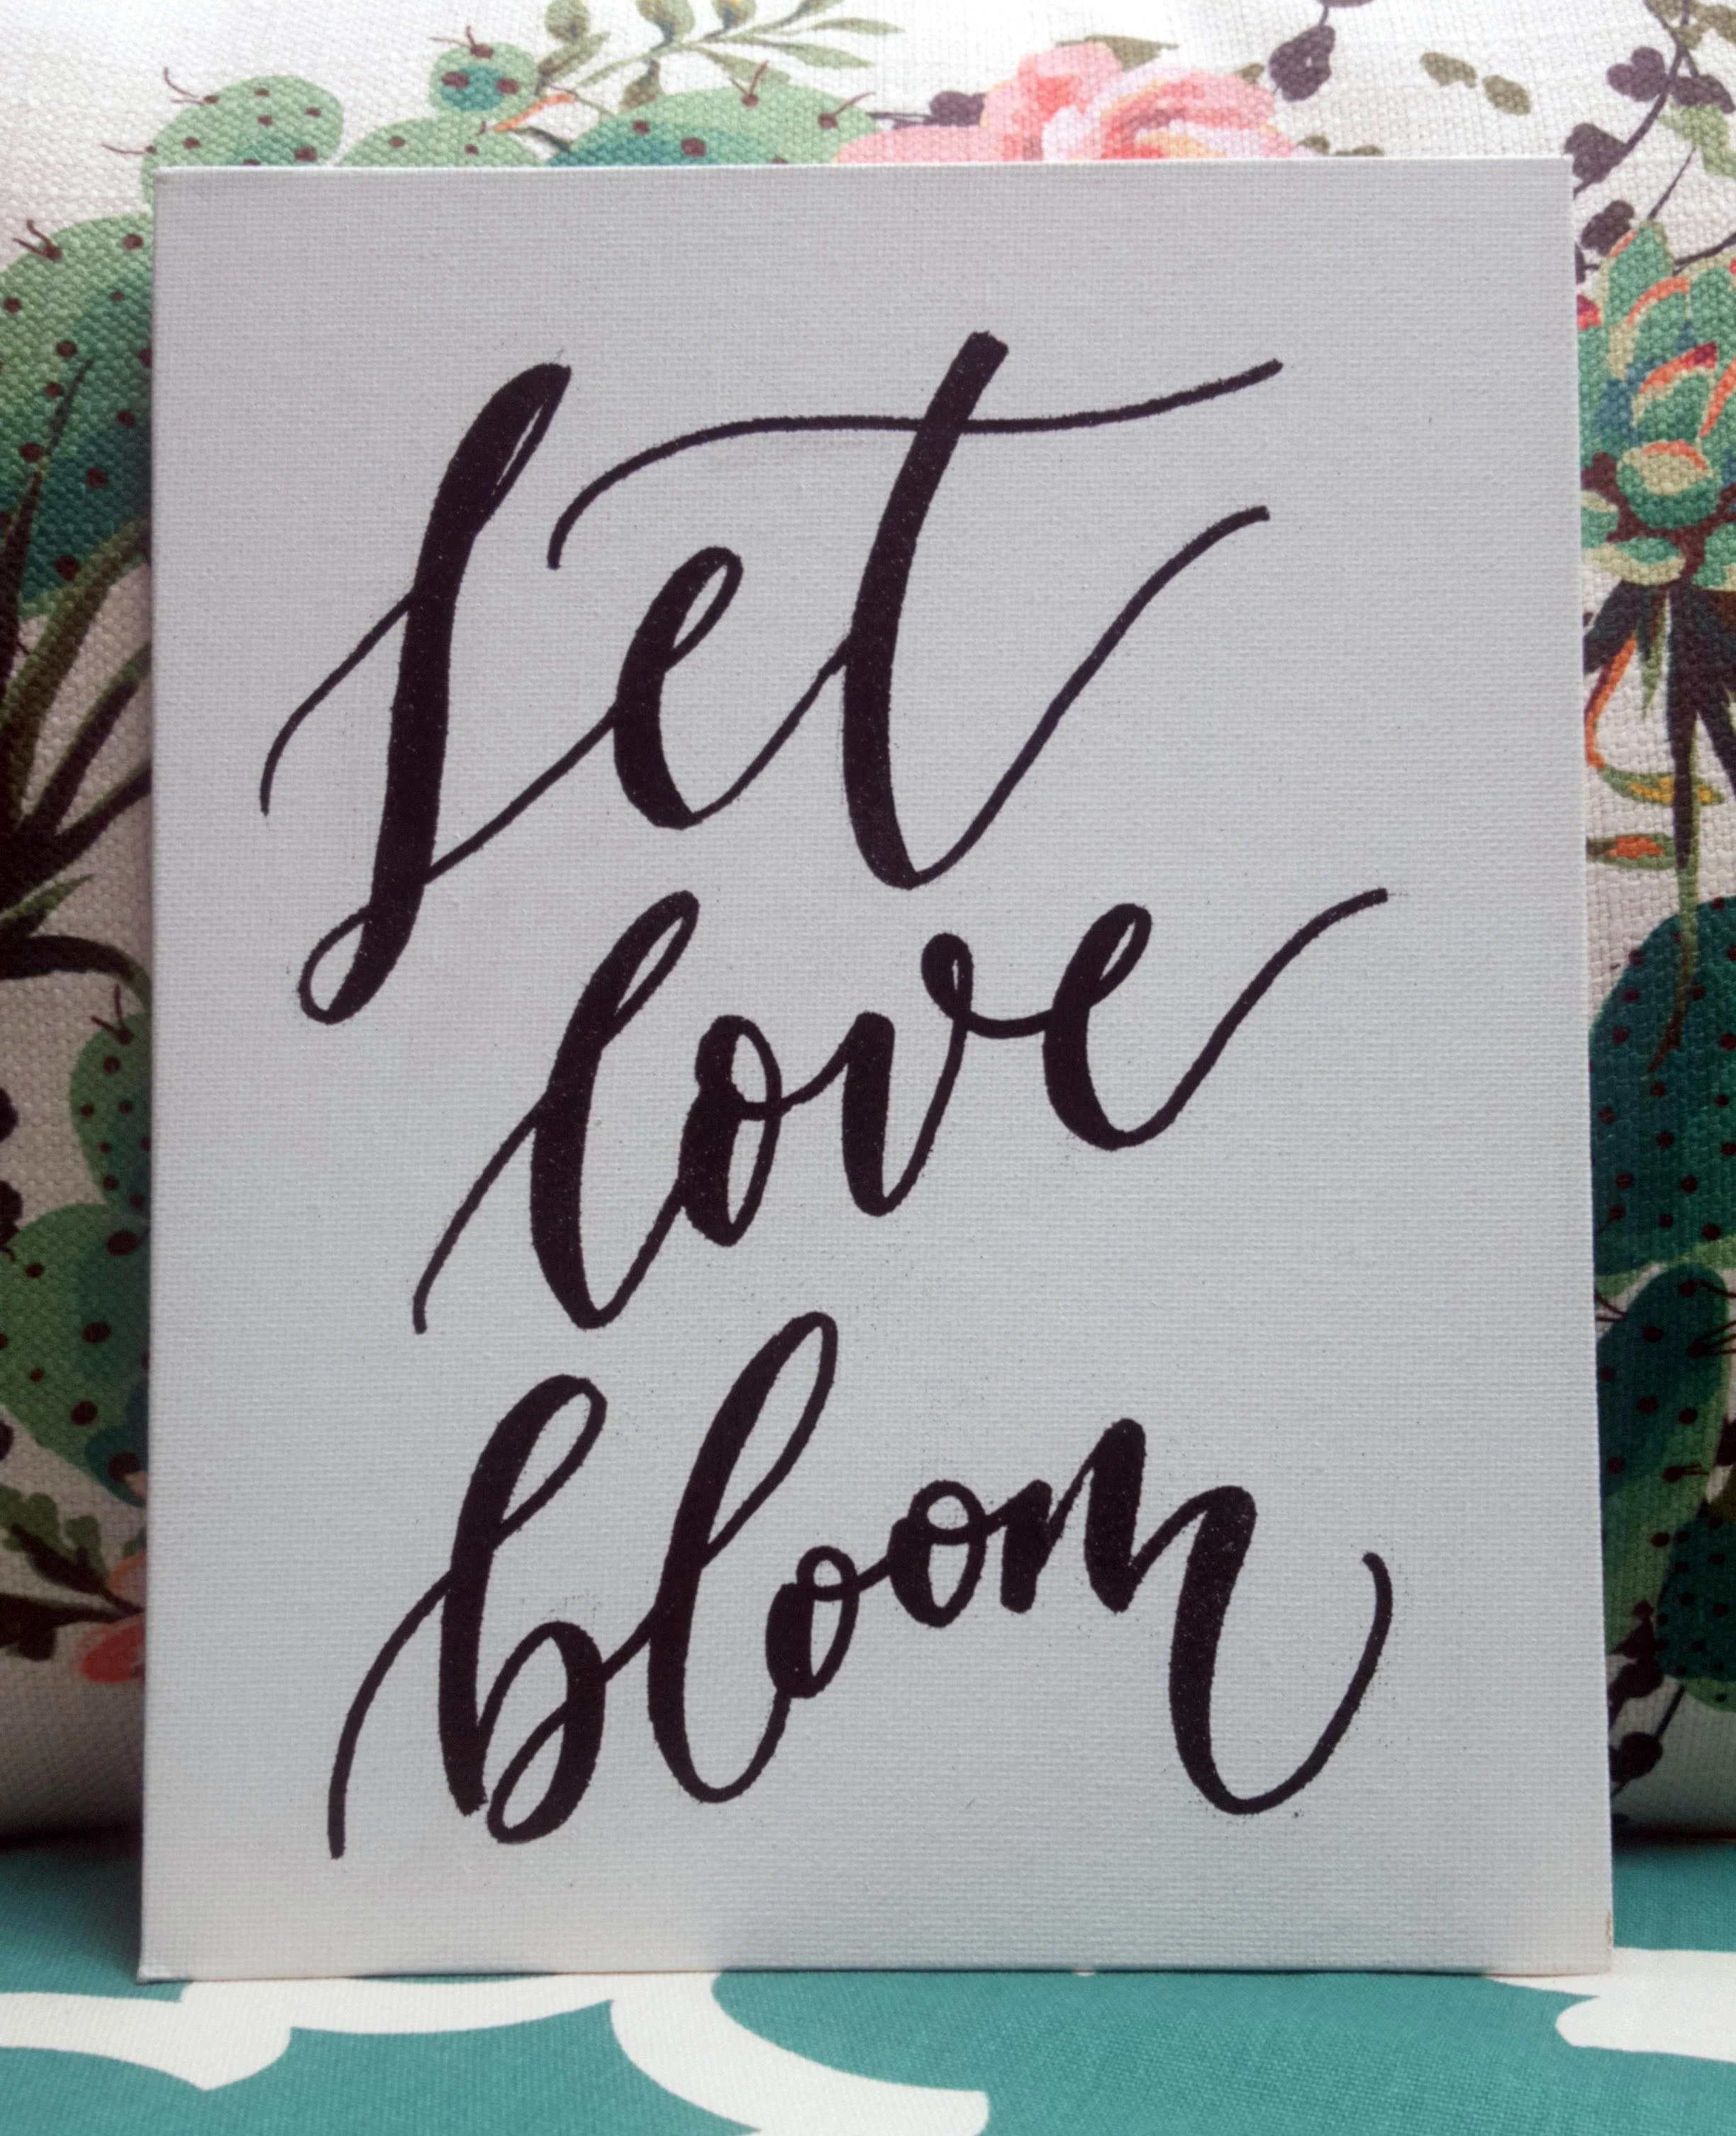 Let
love
bloom